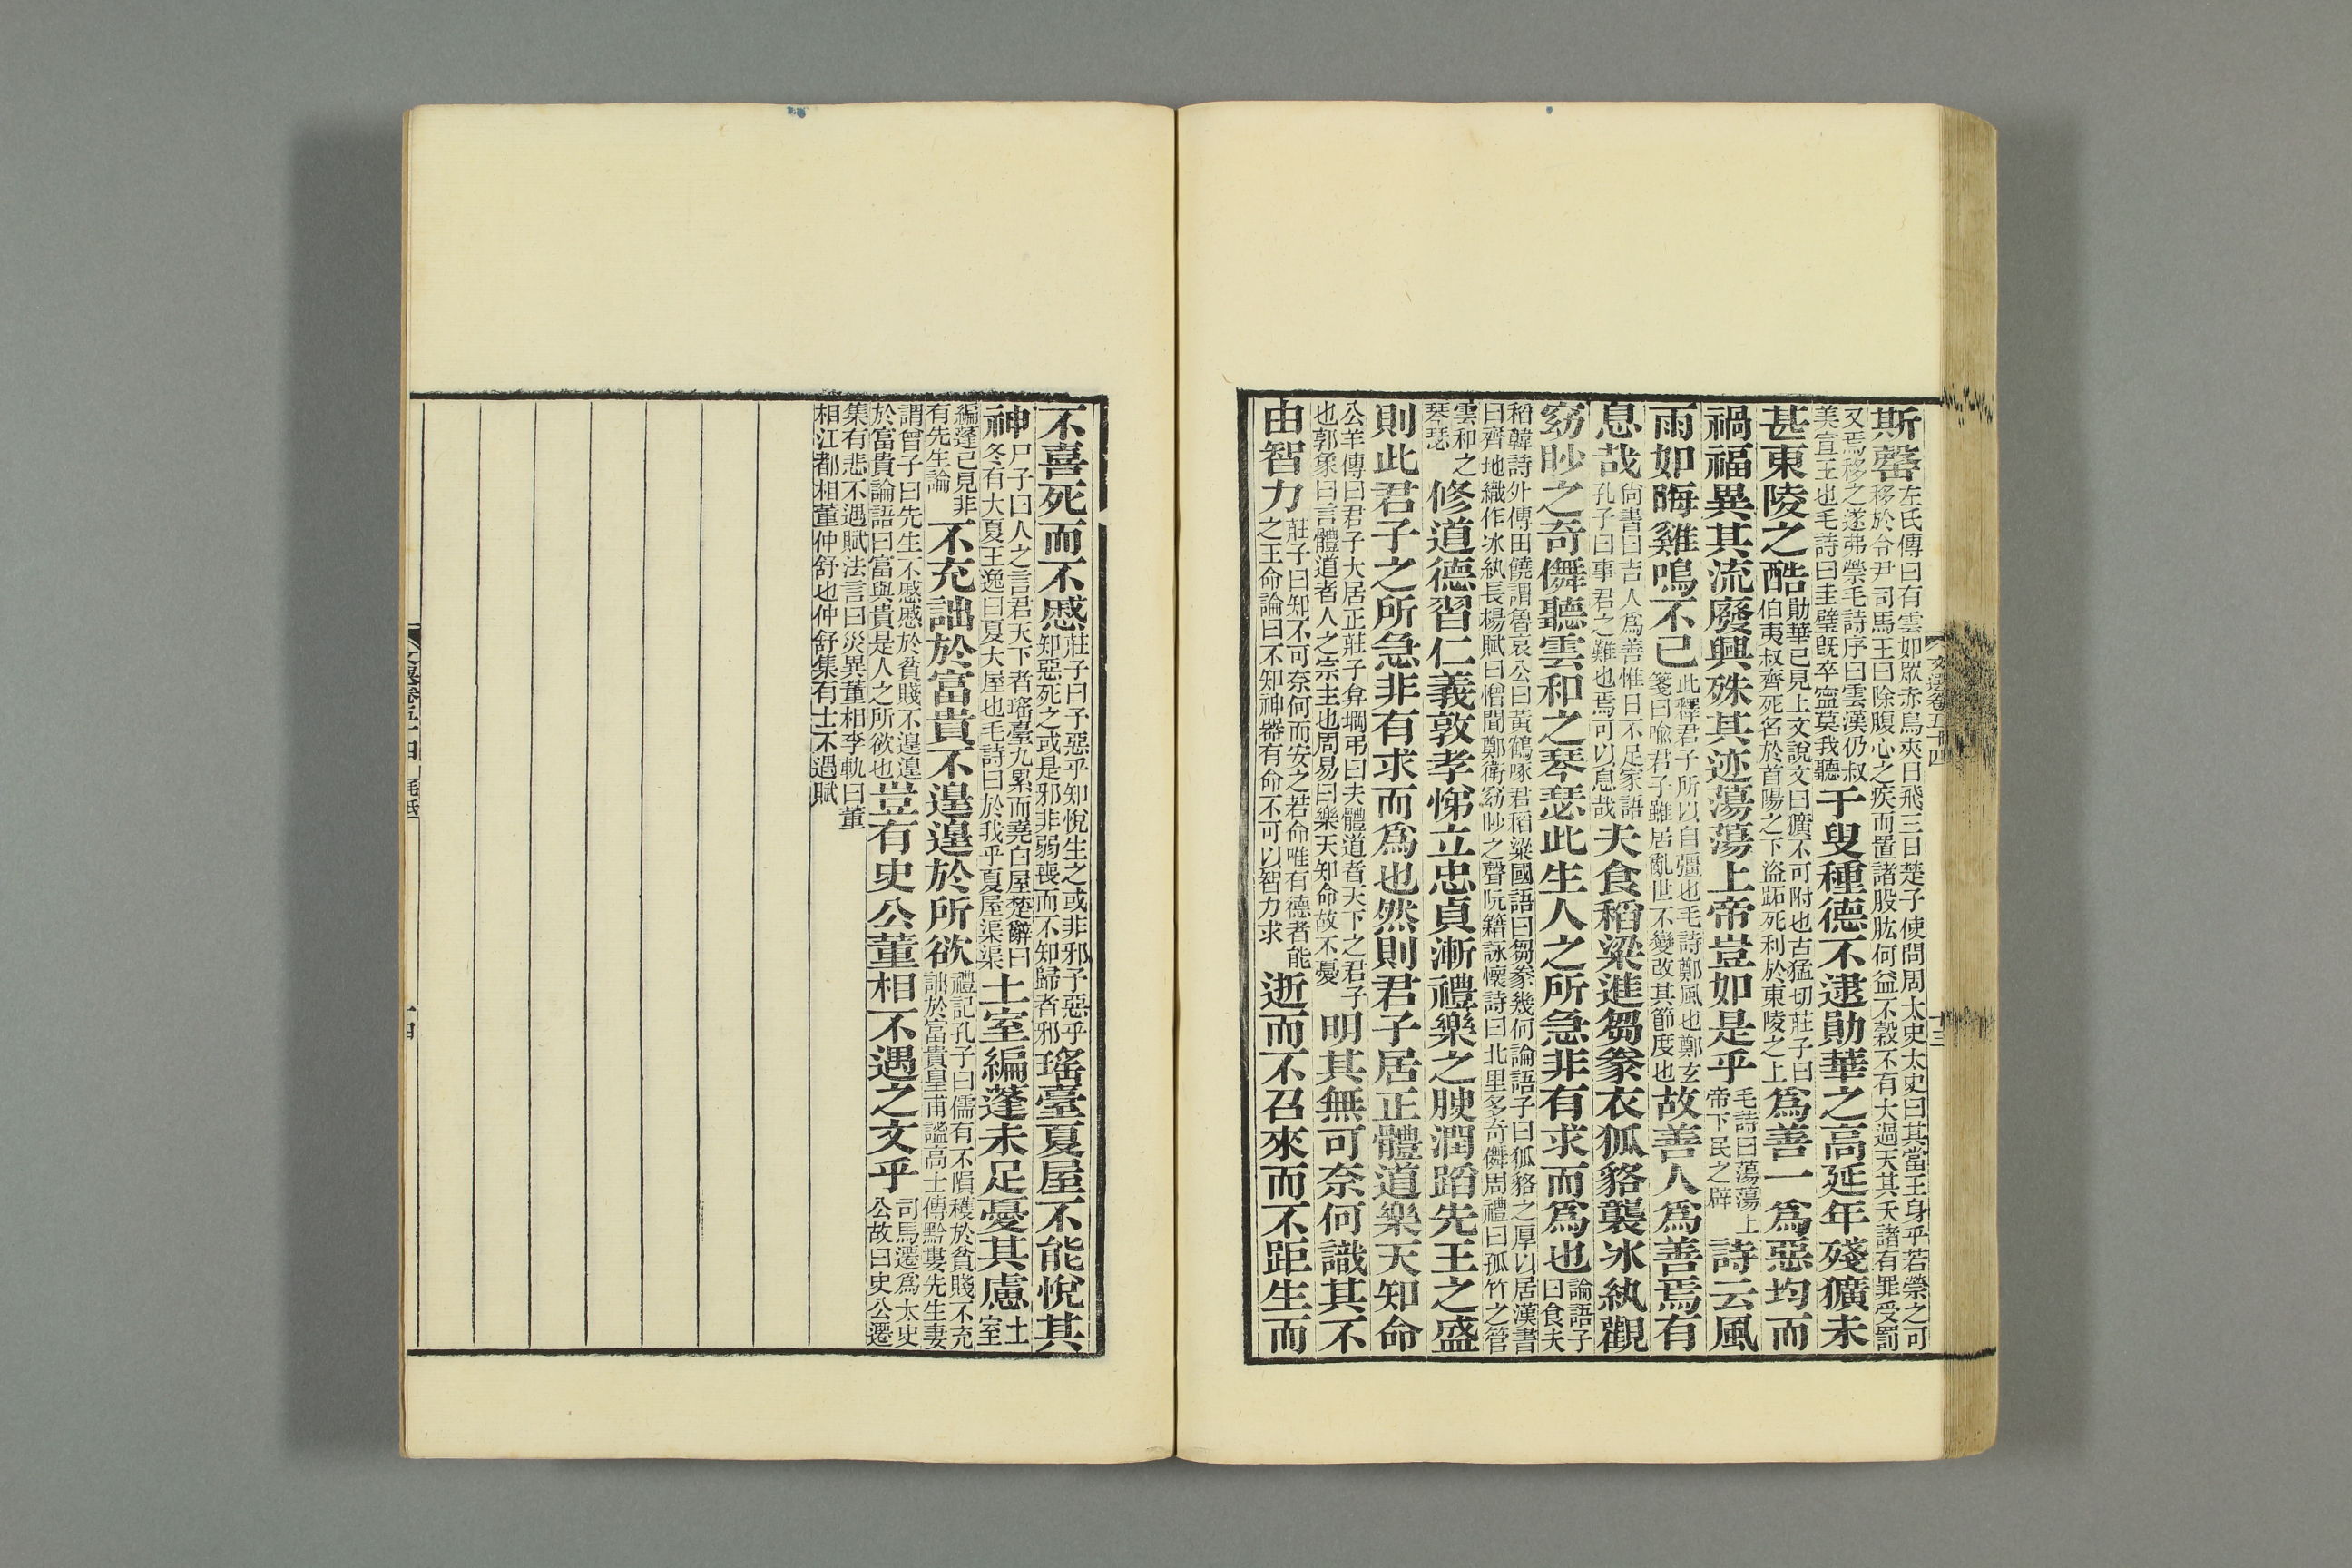 文選卷五十四　十三
斯罄左氏傳曰有雲如眾赤鳥夾日飛三日楚子使問周太史太史曰其當王身乎若禜之可移於令尹司馬王曰除腹心之疾而置諸股肱何益不穀不有大過天其夭諸有罪受罰
又焉移之遂弗禜毛詩序曰雲漢仍叔美宣王也毛詩曰圭璧旣卒寍莫我聽于叟種德不逮勛華之高延年殘獷未
甚東陵之酷勛華已見上文說文曰獷不可附也古猛切莊子曰伯夷叔齊死名於首陽之下盜跖死利於東陵之上爲善一爲惡均而
禍福異其流廢興殊其迹蕩蕩上帝豈如是乎毛詩曰蕩蕩上帝下民之辟詩云風
雨如晦雞鳴不已此釋君子所以自彊也毛詩鄭風也鄭玄箋曰喻君子雖居亂世不變改其節度也故善人爲善焉有
息哉尚書曰吉人爲善惟日不足家語孔子曰事君之難也焉可以息哉夫食稻粱進芻豢衣狐貉襲冰紈觀
窈眇之奇儛聽雲和之琴瑟此生人之所急非有求而爲也論語子曰食夫
稻韓詩外傳田饒謂魯哀公曰黃鶴啄君稻粱國語曰芻豢幾何論語子曰狐貉之厚以居漢書曰齊地織作冰紈長楊賦曰憎聞鄭衛窈眇之聲阮籍詠懷詩曰北里多奇儛周禮曰孤竹之管
雲和之琴瑟修道德習仁義敦孝悌立忠貞漸禮樂之腴潤蹈先王之盛
則此君子之所急非有求而爲也然則君子居正體道樂天知命
公羊傳曰君子大居正莊子弇堈弔曰夫體道者天下之君子也郭象曰言體道者人之宗主也周易曰樂天知命故不憂明其無可奈何識其不
由智力莊子曰知不可奈何而安之若命唯有德者能之王命論曰不知神器有命不可以智力求逝而不召來而不距生而
不喜死而不慼莊子曰予惡乎知悅生之或非邪予惡乎知惡死之或是邪非弱喪而不知歸者邪瑤臺夏屋不能悅其
神尸子曰人之言君天下者瑤臺九累而堯白屋楚辭曰冬有大夏王逸曰夏大屋也毛詩曰於我乎夏屋渠渠土室編蓬未足憂其慮土室
編蓬已見非有先生論不充詘於富貴不遑遑於所欲禮記孔子曰儒有不隕穫於貧賤不充詘於富貴皇甫謐高士傳黔婁先生妻
謂曾子曰先生不慼慼於貧賤不遑遑於富貴論語曰富與貴是人之所欲也豈有史公董相不遇之文乎司馬遷爲太史公故曰史公遷
集有悲不遇賦法言曰災異董相李軌曰董相江都相董仲舒也仲舒集有士不遇賦
文選卷五十四　十四